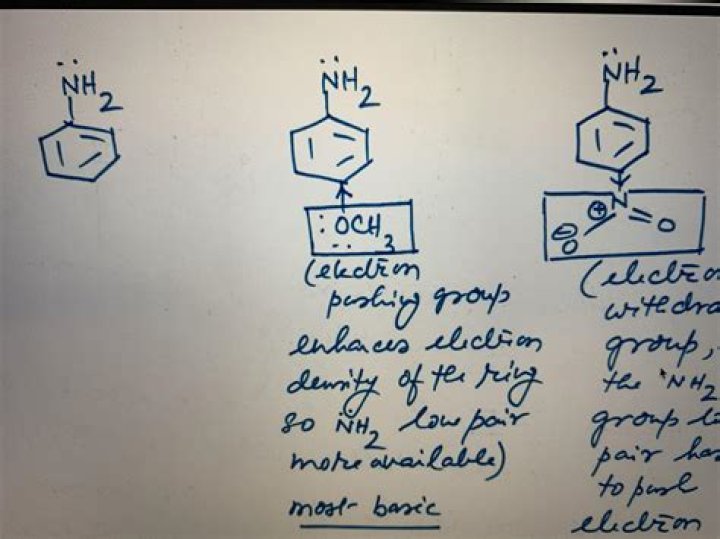 N̈H2
N̈H2
N̈H2
:ÖCH3
N
⊕
⊖
O
O
(electron
pushing group
enhances electron
density of the ring
so N̈H2 lone pair
more available)
most basic
(electro
withdra
group,
the N̈H2
group lo
pair has
to push
electron